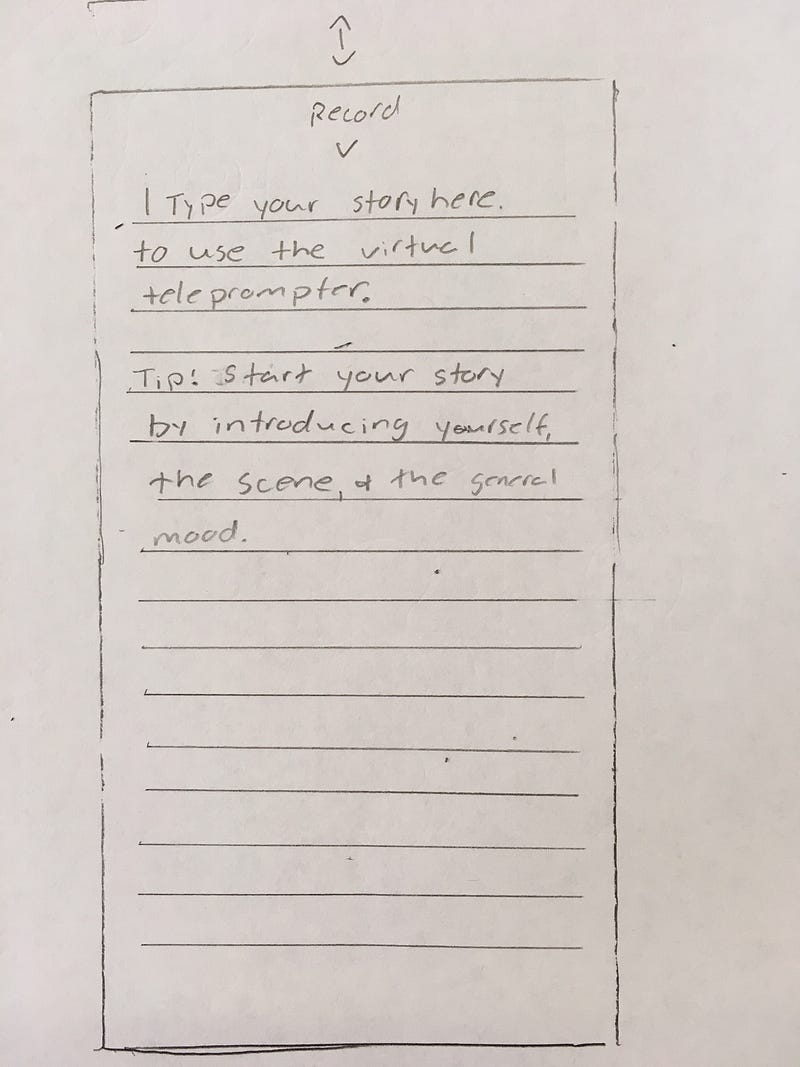 Record
| Type your story here.
to use the virtual
teleprompter.
Tip! Start your story
by introducing yourself,
the scene, & the general
mood.